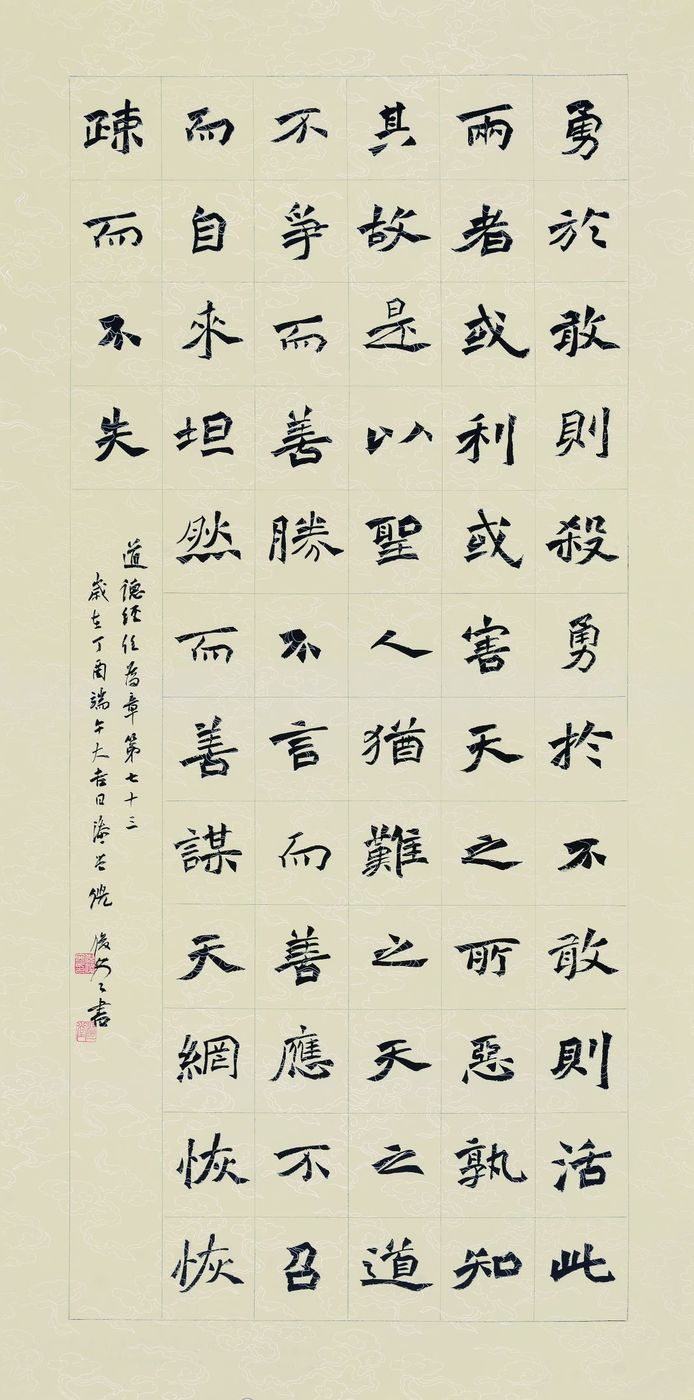 勇於敢則殺勇於不敢則活此
兩者或利或害天之所惡孰知
其故是以聖人猶難之天之道
不爭而善勝不言而善應不召
而自來坦然而善謀天網恢恢
疎而不失
道德經任為章第七十三
歲在丁酉端午大吉日
書